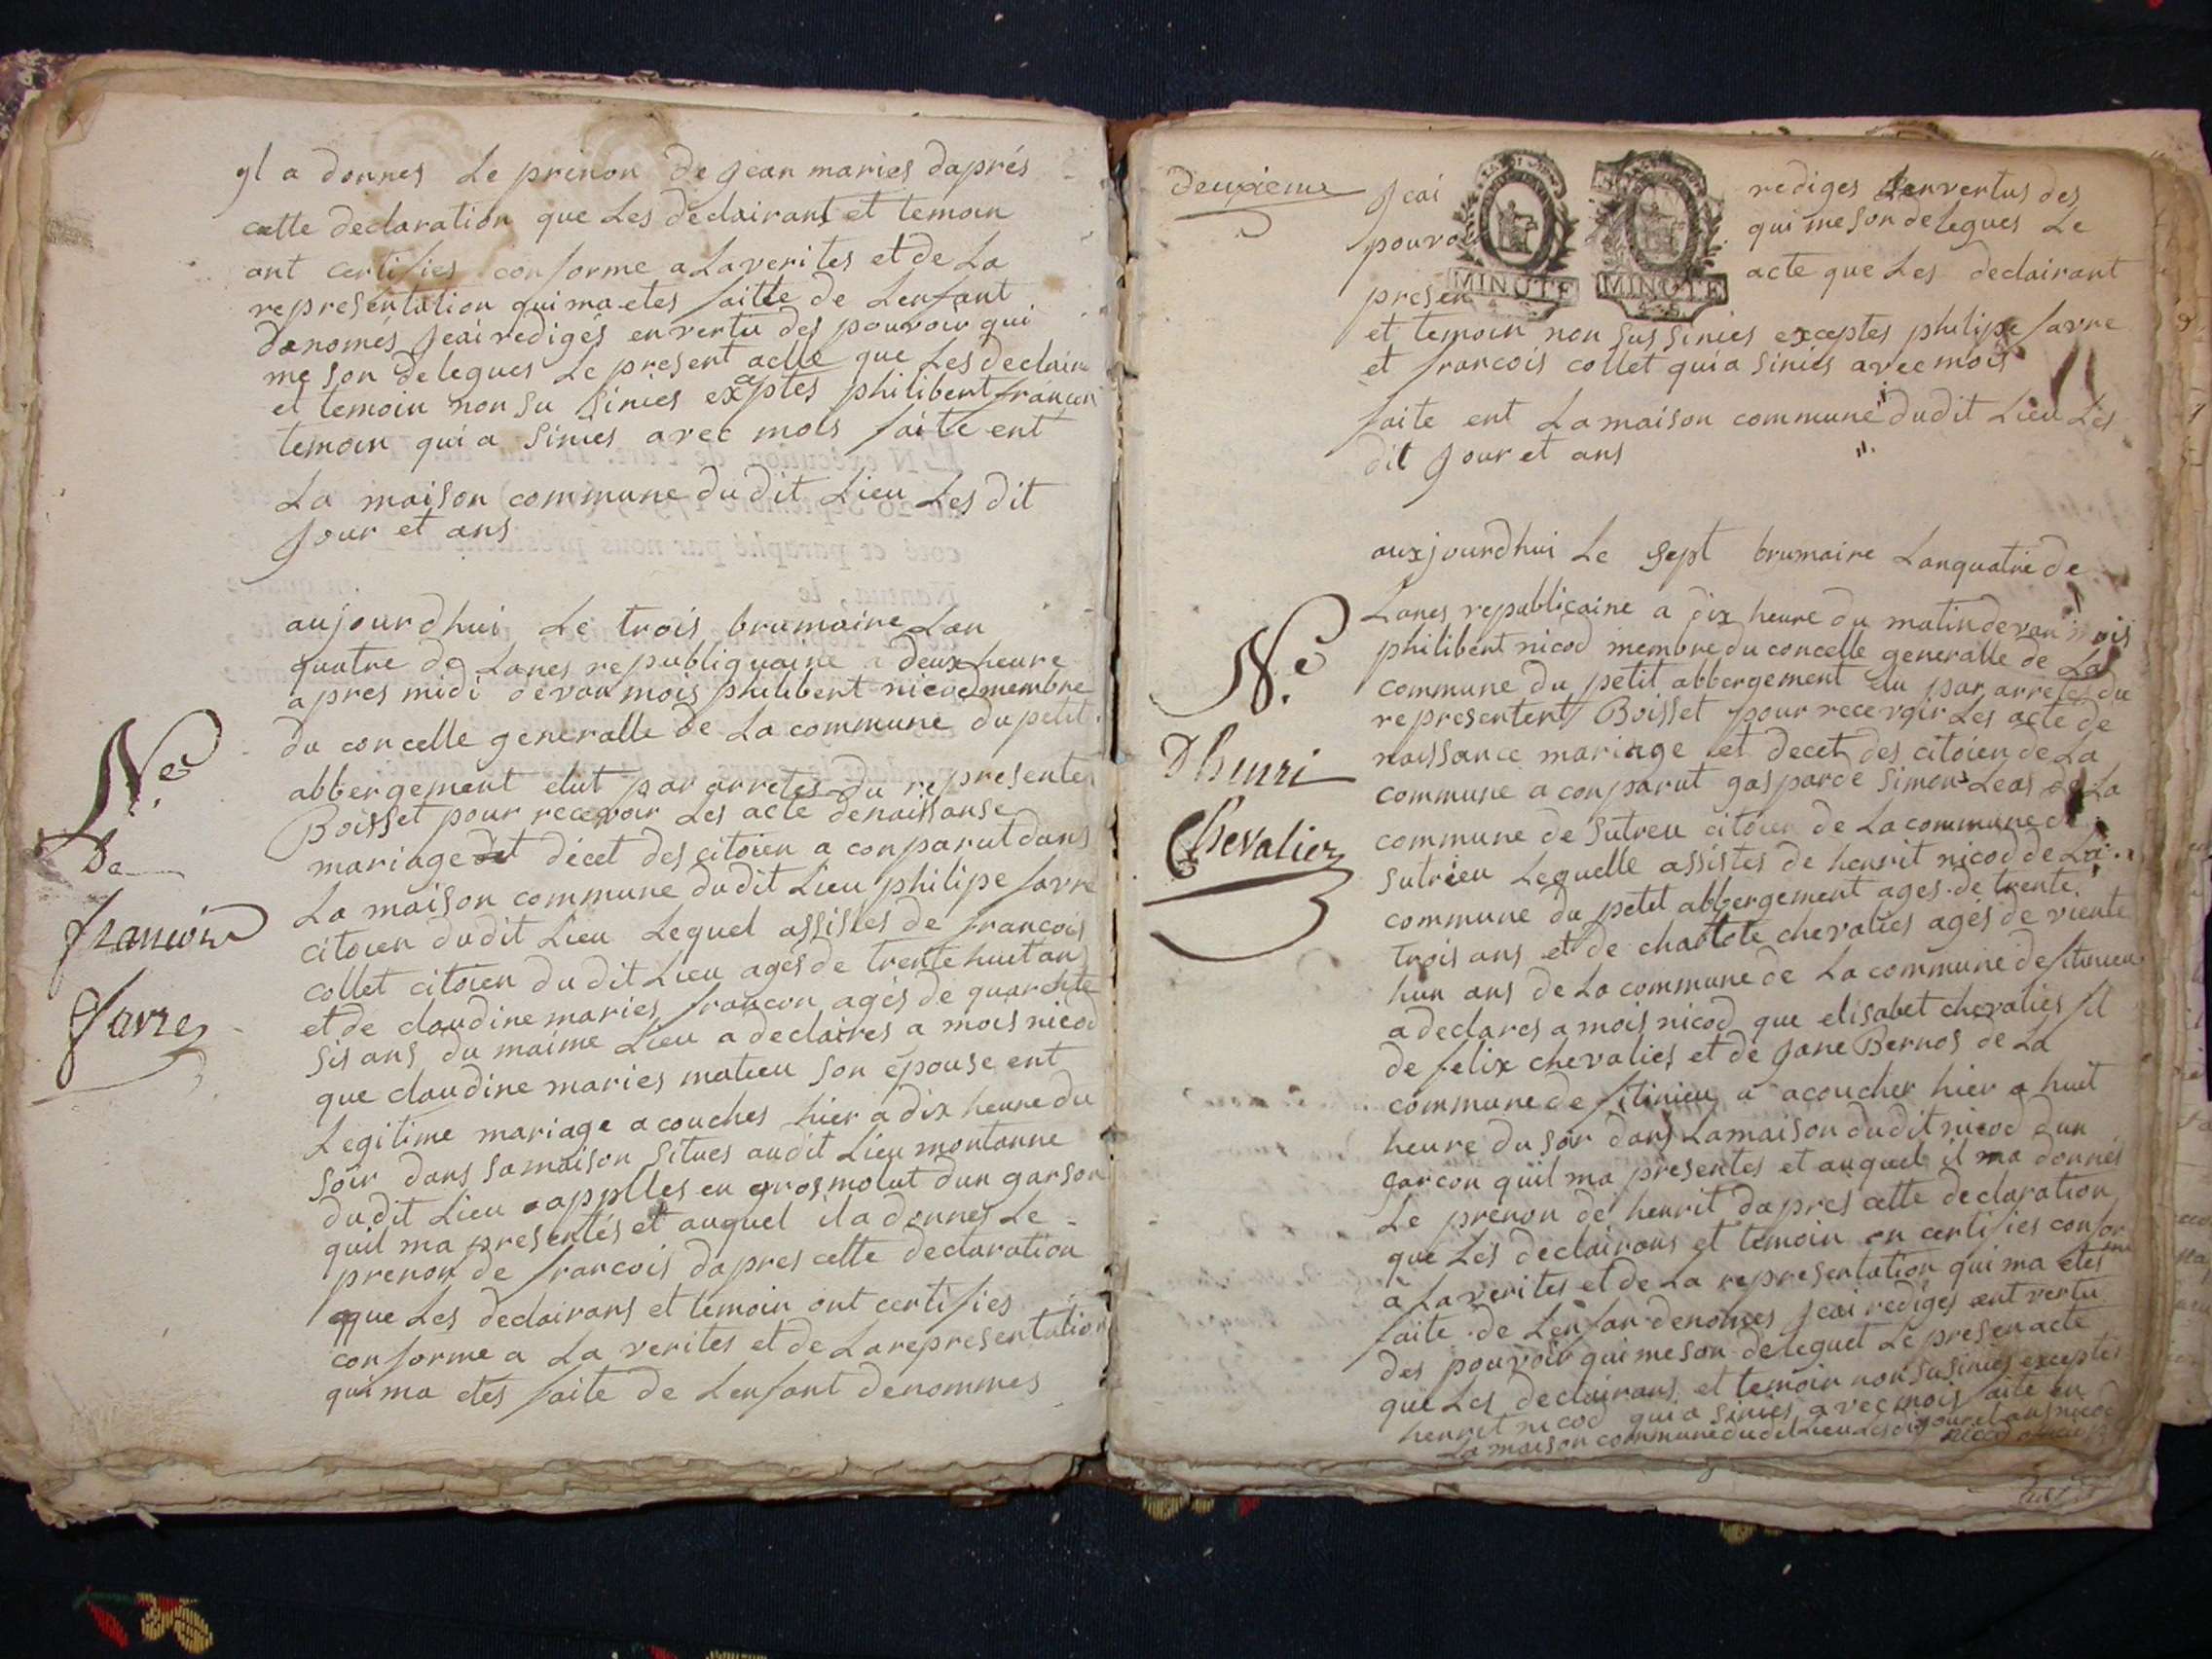 yl a donnes Le prenon de jean maries daprés
cette declaration que Les declairant et temoin
ont certifies conforme a La verites et de La
representation qui ma etes faitte de Lenfant
denomés jeai redigés en vertu des pouvoir qui
me son delegues Le present acte que Les declairn
et temoin non su sinies exceptes philibert francon
temoin qui a sinies avec mois faite ent
La maison commune dudit Lieu Les dit
jour et ans
aujourdhui Le trois brumaire Lan
quatre de Lanes republiquaine a deux heure
apres midi devan mois philibert nicod membre
du concelle generalle de La commune du petit
abbergement elut par arretes du representes
Boisset pour recevoir Les acte denaissanse
mariage et décet des citoien a conparut dans
La maison commune dudit Lieu philipe favre
citoien dudit Lieu Lequel assistes de francois
collet citoien dudit Lieu agés de trente huit an
et de claudine maries francon agés de quarente
sis ans du maime Lieu a declaires a mois nicod
que claudine maries matieu son épouse ent
Legitime mariage a couches hier a dix heure du
soir dans sa maison situes audit Lieu montanne
dudit Lieu appplles en gros molut dun garson
quil ma presentés et auquel il a donnes Le
prenon de francois dapres cette declaration
que Les declairans et temoin ont certifies
conforme a La verites et de La representation
qui ma etes faite de Lenfant denommes
Ne
De
francois
favre
deuxieme
jeai rediges en vertus des
pouvoir qui me son delegues Le
presen acte que Les declairant
MINUTE MINUTE
et temoin non sus sinies exceptes philipe favre
et francois collet qui a sinies avec mois
faite ent La maison commune dudit Lieu Les
dit jour et ans
auxjourdhui Le sept brumaire Lanquatre de
Lanes republicaine a dix heure du matin devan mois
philibert nicod membre du concelle generalle de La
commune du petit abbergement elu par arretes du
representent Boisset pour recevoir Les acte de
naissance mariage et decet des citoien de La
commune a conparut gasparde simon Leas de La
commune de sutreu citoien de La commune de
sutrieu Lequelle assistes de henrit nicod de La
commune du petit abbergement ages de trente
trois ans et de charlote chevalies agés de viente
hun ans de La commune de La commune de
a declares a mois nicod que elisabet chevalies fil
de felix chevalies et de jane Bernos de La
commune de a acoucher hier a huit
heure du soir dans La maison dudit nicod dun
garcon quil ma presentes et auquel il ma donnés
Le prenon de henrit dapres cette declaration
que Les declairans et temoin on certifies conforme
a La verites et de La representation qui ma etes
faite de Lenfan denomes jeai rediges ent vertu
des pouvoir qui me son deleguet Le presen acte
que Les declairans et temoin non su sinies exceptes
henrit nicod qui a sinies avec mois faite en
La maison commune dudit Lieu Les dit jour et ans nicod
Ne
D henri
Chevalier